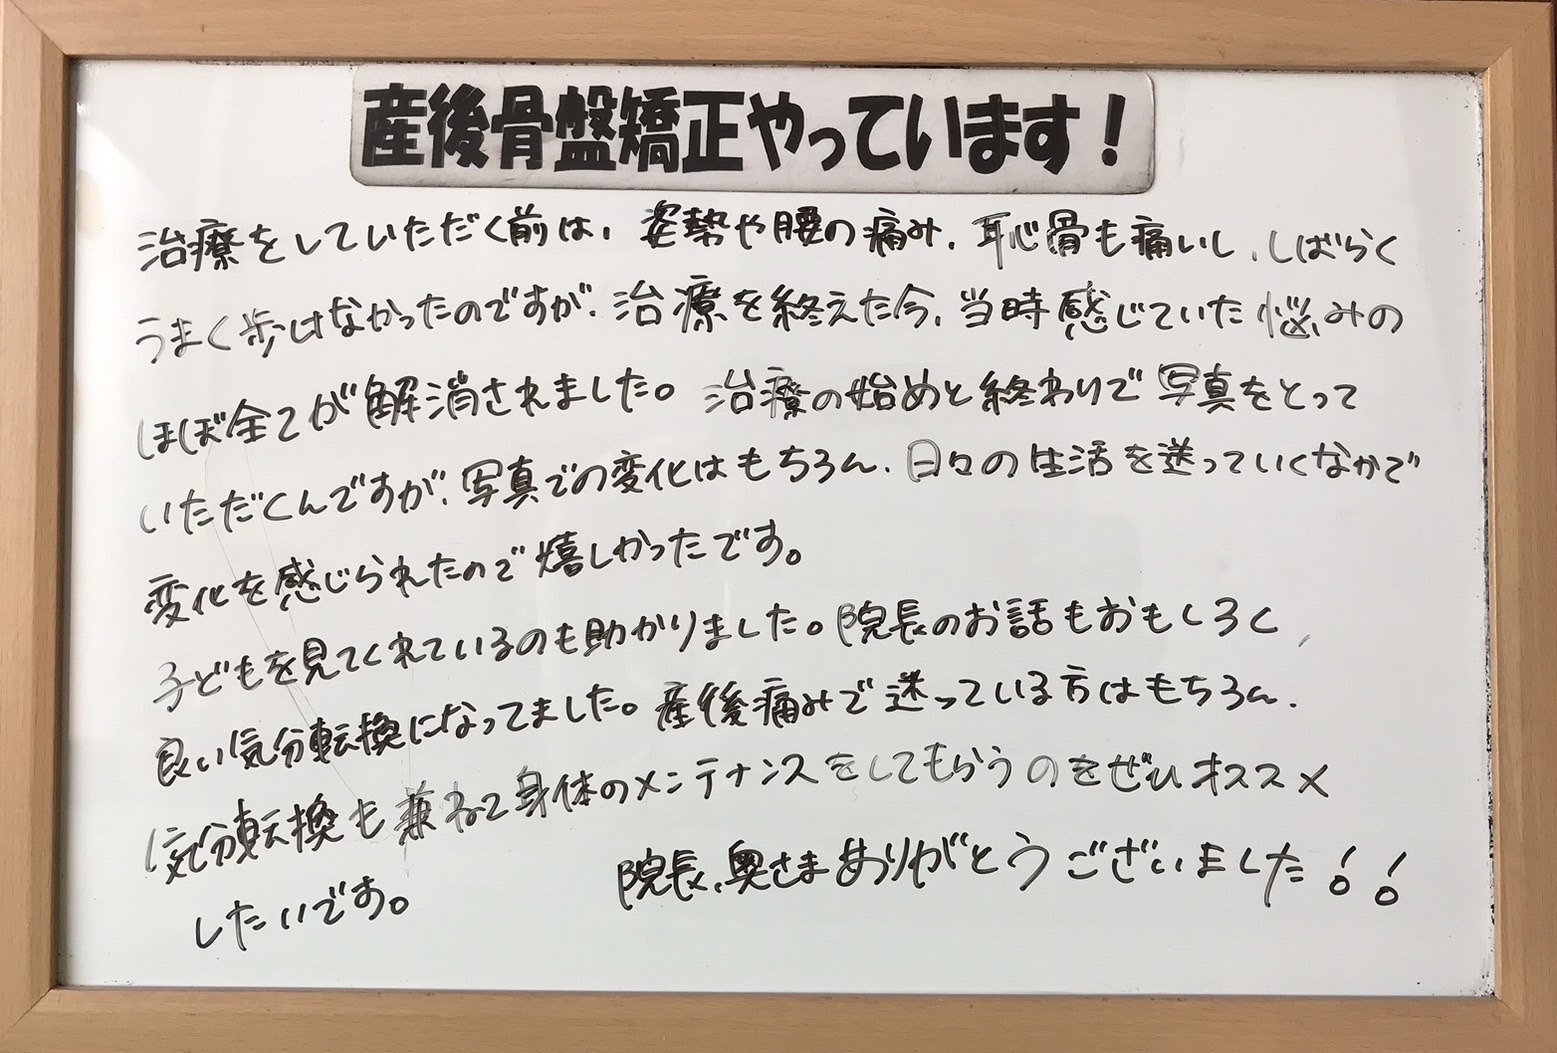 産後骨盤矯正やっています！
治療をしていただく前は、姿勢や腰の痛み、恥骨も痛いし、しばらく
うまく歩けなかったのですが、治療を終えた今、当時感じていた悩みの
ほぼ全てが解消されました。治療の始めと終わりで写真をとって
いただくんですが、写真での変化はもちろん、日々の生活を送っていくなかで
変化を感じられたので嬉しかったです。
子どもを見てくれているのも助かりました。院長のお話もおもしろく、
良い気分転換になってました。産後痛みで迷っている方はもちろん、
気分転換も兼ねて身体のメンテナンスをしてもらうのをぜひオススメ
したいです。
院長、奥さまありがとうございました！！